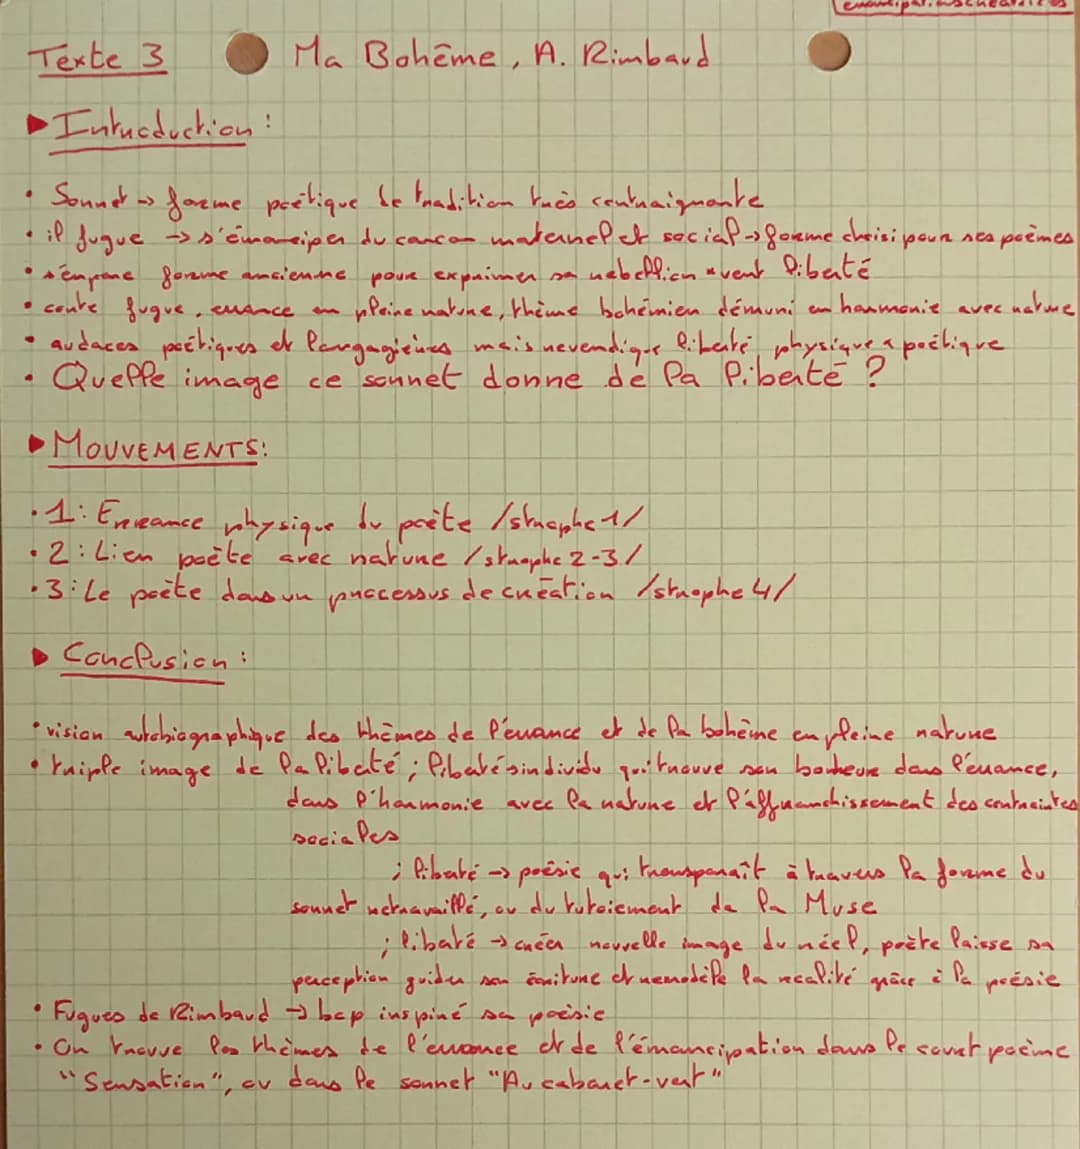 émancipations créatrices
Texte 3 Ma Bohême, A. Rimbaud
▶ Introduction :
• Sonnet → forme poétique de tradition très contraignante
• il fugue → s'émanciper du carcan maternel et social → forme choisi pour ses poèmes
• s'empare forme ancienne pour exprimer sa rebellion "vent liberté
• conte fugue, errance en pleine nature, thème bohémien démuni en harmonie avec nature
• audaces poétiques et langagières mais revendique liberté physique & poétique
• Quelle image ce sonnet donne de la liberté ?
▶ MOUVEMENTS:
• 1: Errance physique du poète /strophe 1/
• 2: Lien poète avec nature /strophe 2-3/
• 3: Le poète dans un processus de création /strophe 4/
▶ Conclusion :
• vision autobiographique des thèmes de l'errance et de la bohème en pleine nature
• triple image de la liberté ; liberté individu qui trouve son bonheur dans l'errance,
dans l'harmonie avec la nature et l'affranchissement des contraintes
sociales
; liberté → poésie qui transparaît à travers la forme du
sonnet retravaillé, ou du tutoiement de la Muse
; liberté → créer nouvelle image du réel, poète laisse sa
perception guider son écriture et remodèle la réalité grâce à la poésie
• Fugues de Rimbaud → bcp inspiré sa poésie
• On trouve les thèmes de l'errance et de l'émancipation dans le court poème
"Sensation", ou dans le sonnet "Au cabaret-vert"